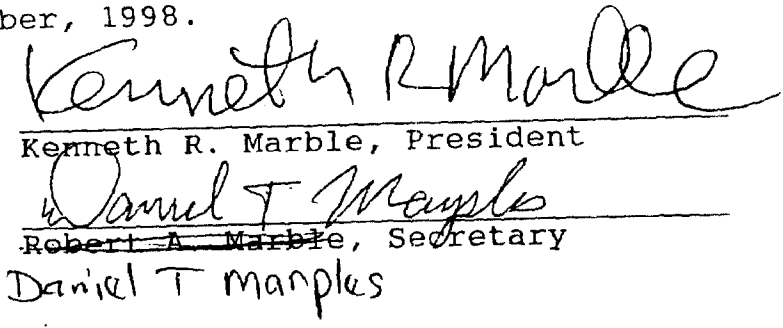 ber, 1998.
Kenneth R Marble
Kenneth R. Marble, President
Daniel T Marples
Robert A. Marble, Secretary
Daniel T Manples